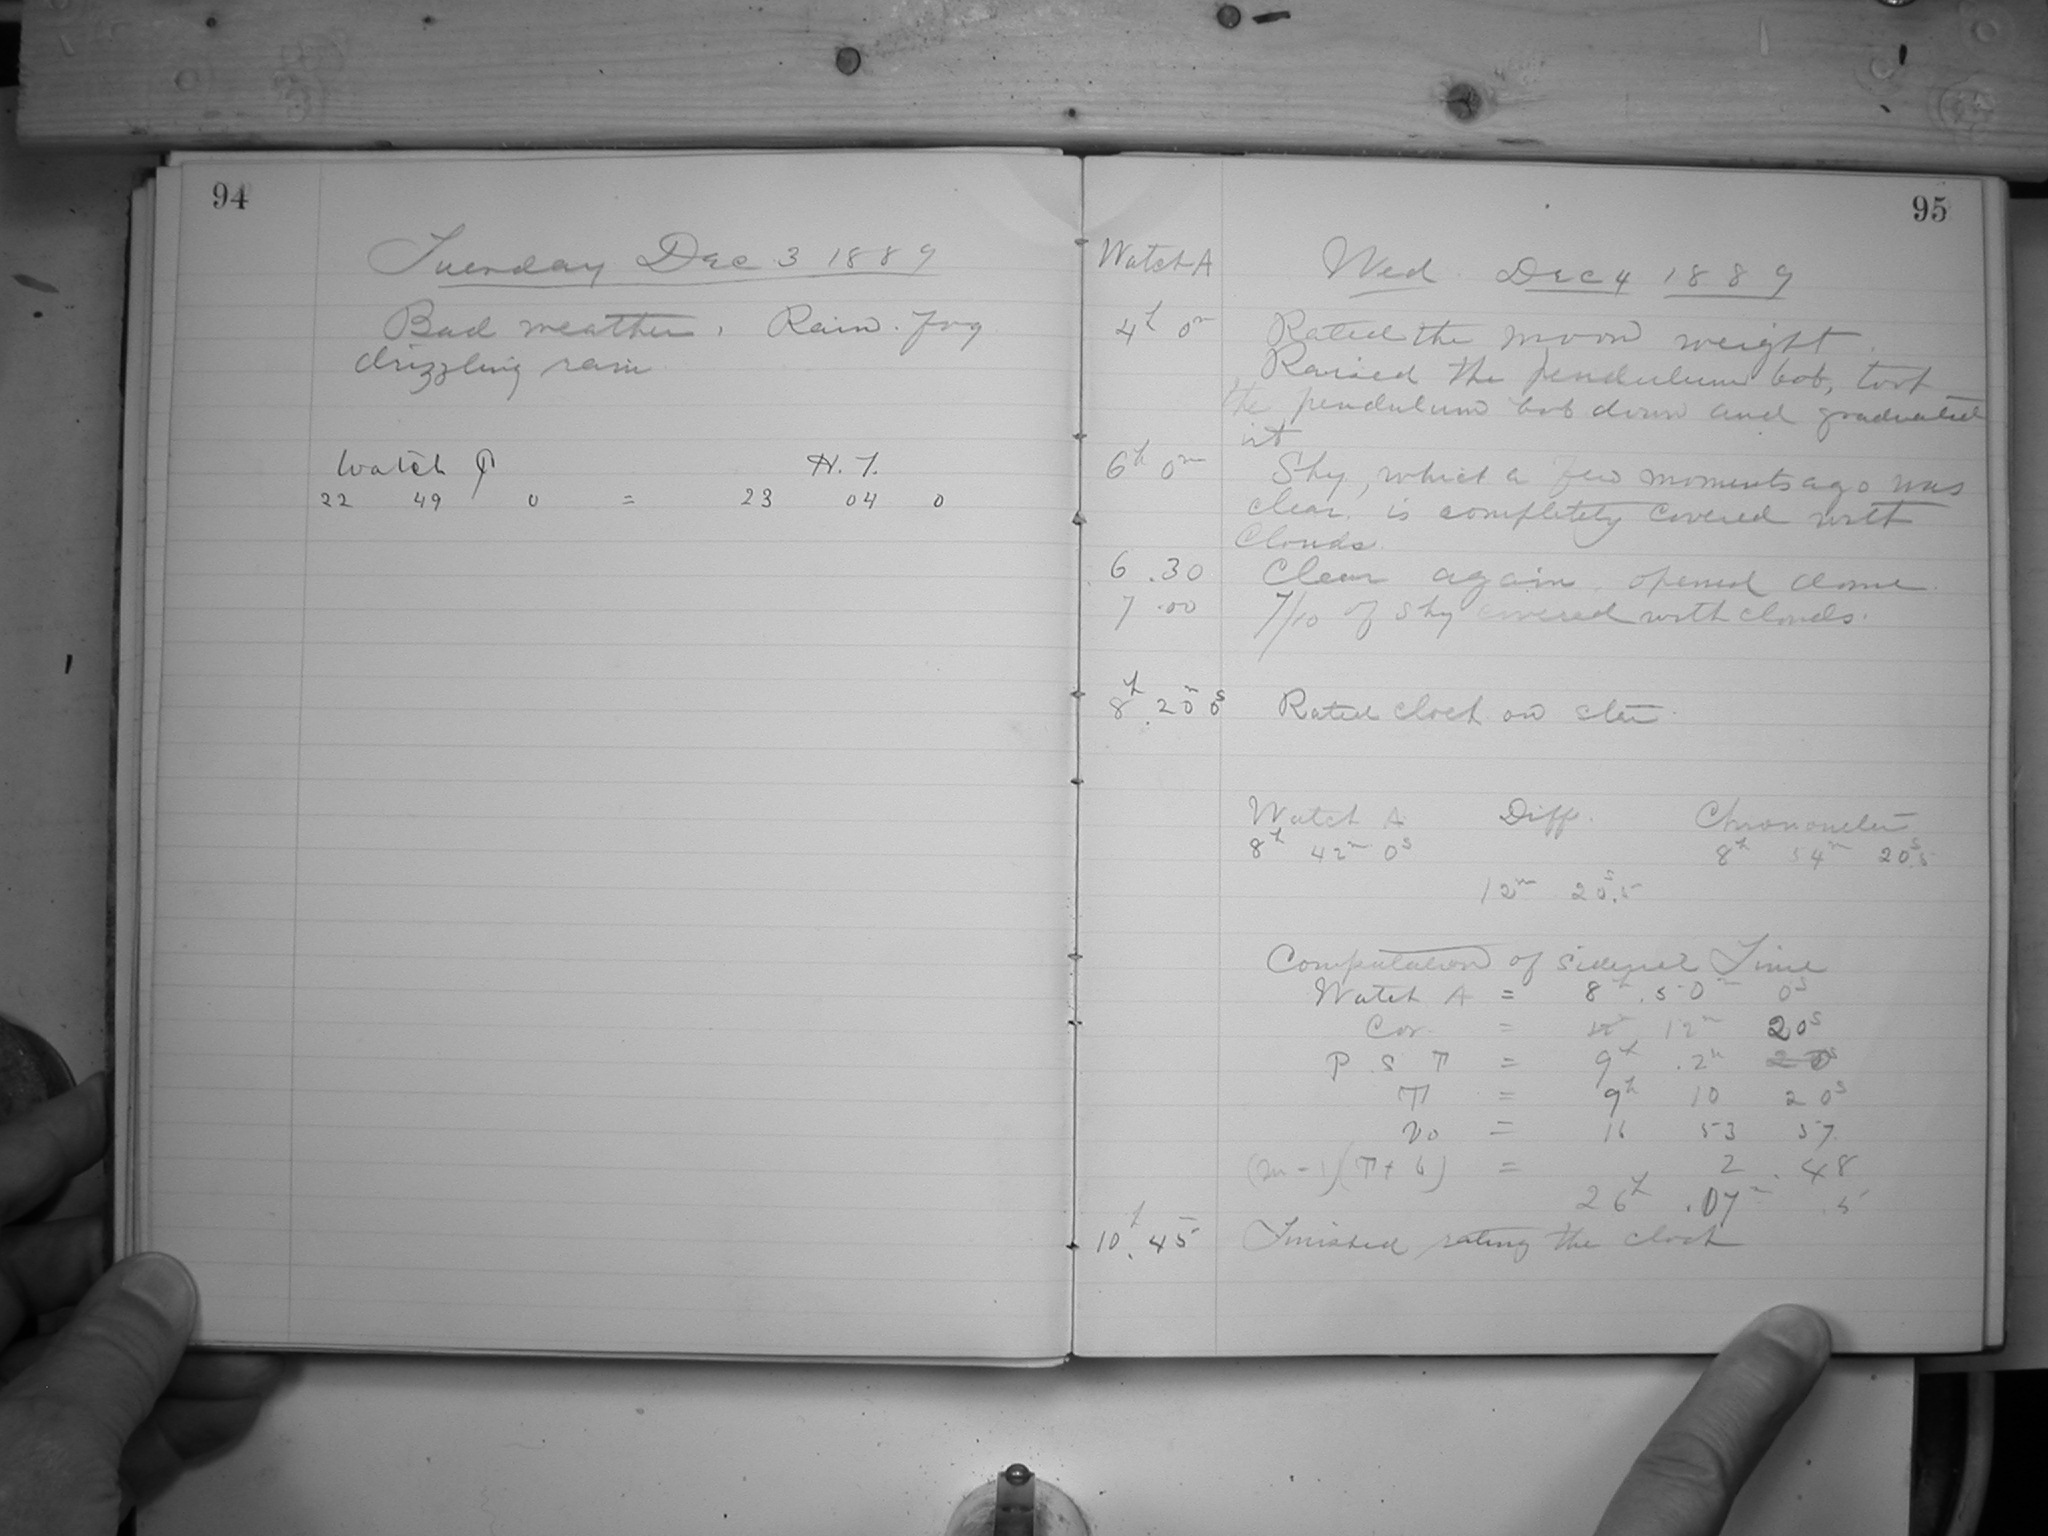 94
Tuesday Dec 3 1889
Bad weather. Rain. Fog
drizzling rain
Watch H. T.
22 49 0 = 23 04 0
95
Watch A Wed Dec 4 1889
4h 0m Rated the moon weight.
Raised the pendulum bob, took
the pendulum bob down and graduated
it
6h 0m Sky, which a few moments ago was
clear, is completely covered with
Clouds.
6.30 Clear again, opened dome.
7.00 7/10 of sky covered with clouds.
8h. 20m 0s Rated clock on star.
Watch A Diff. Chronometer
8h 42m 0s 8h 54m 20s.5
12m 20s.5
Computation of sidereal Time
Watch A = 8h. 50m 0s
Cor. = 12m 20s
P S T = 9h .2m 20s
T = 9h 10 20s
Vo = 16 53 57
(m-1)(T+L) = 2.48
26h .07m .5
10h. 45 Finished rating the clock